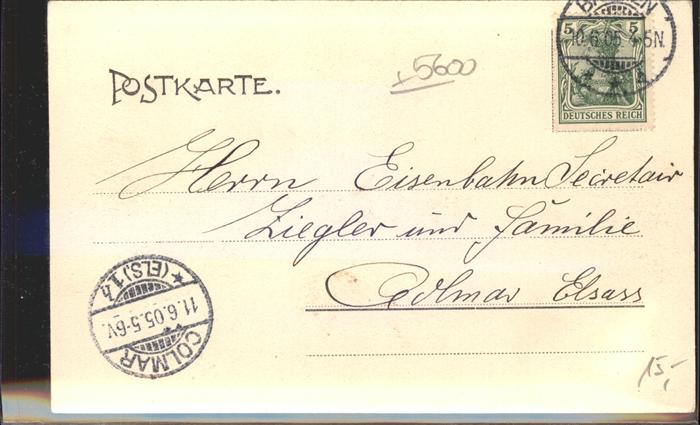 5 5
10.6.05 4-5N.
DEUTSCHES REICH
+5600
POSTKARTE.
Herrn Eisenbahn Secretair
Ziegler und Familie
Colmar Elsass
COLMAR
11.6.05.5-6V.
* (ELS.) 1 h
15,-